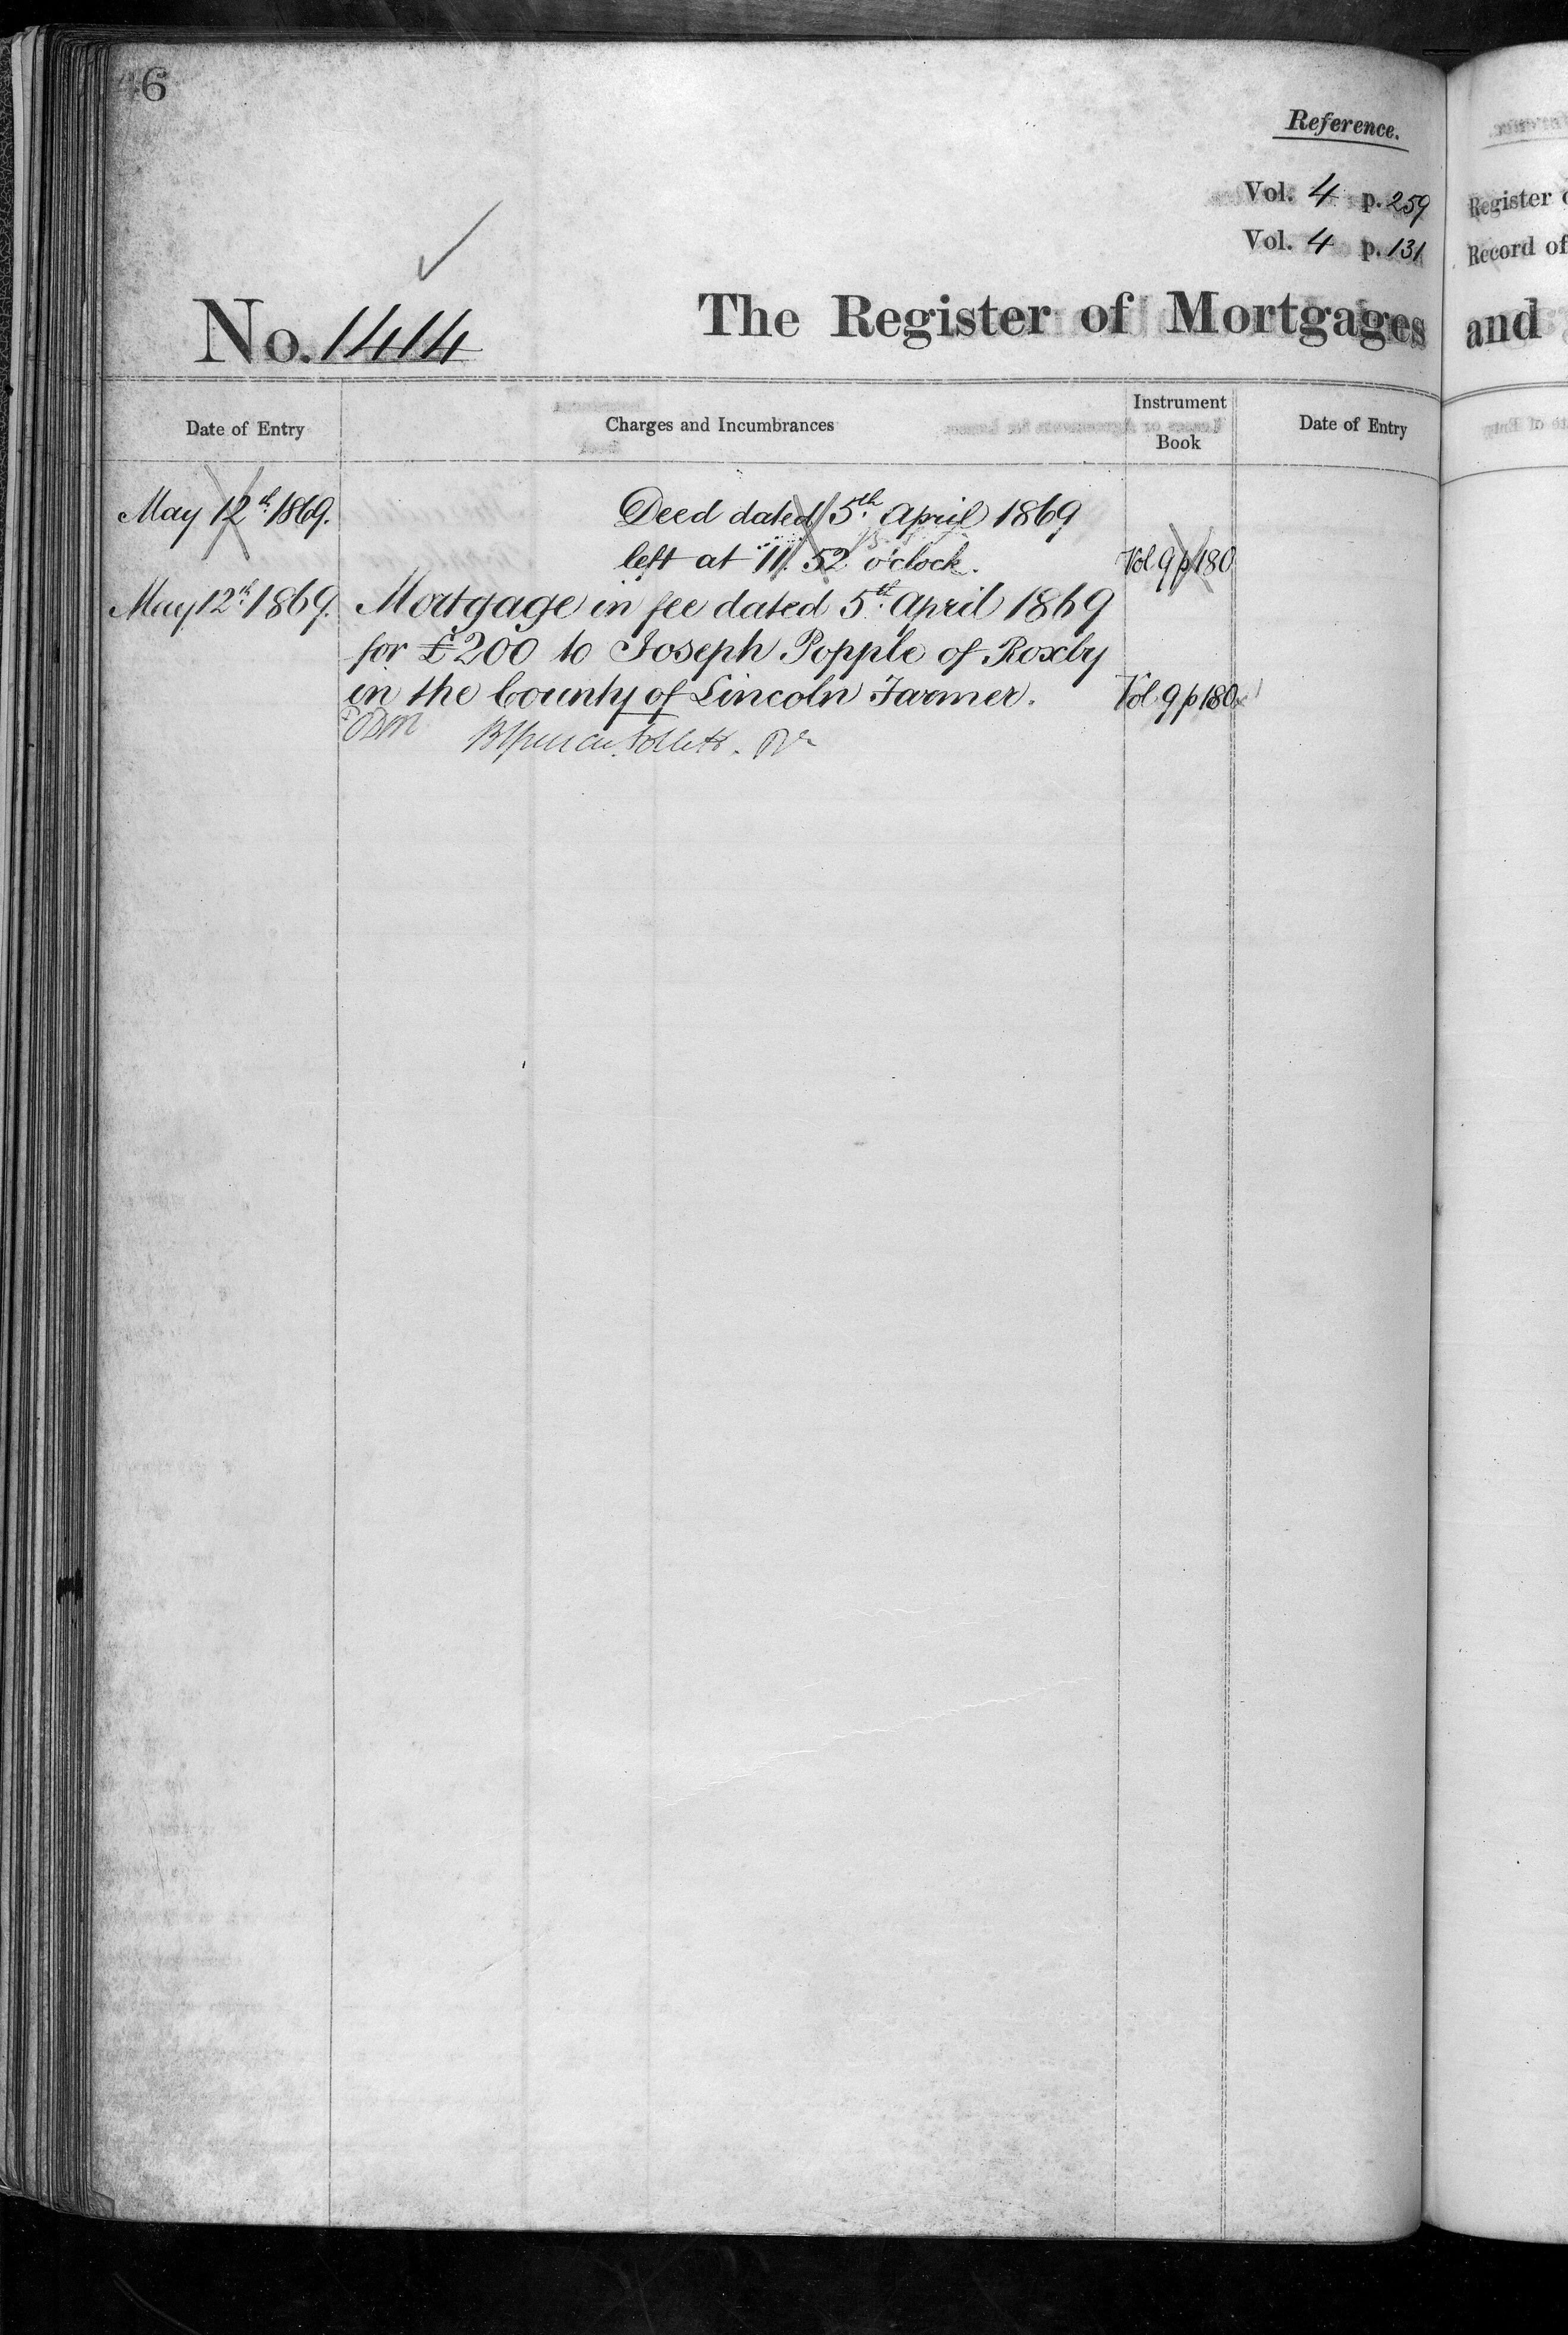 46
Reference.
Vol. 4 p. 259
Vol. 4 p. 131
Register
Record of
No. 1414 The Register of Mortgages and
Date of Entry Charges and Incumbrances Instrument Book Date of Entry
May 12th 1869. Deed dated 5th April 1869
left at 11.52 o'clock. Vol 9 p 180
May 12th 1869. Mortgage in fee dated 5th April 1869
for £200 to Joseph Popple of Roxby
in the County of Lincoln Farmer. Vol 9 p 180